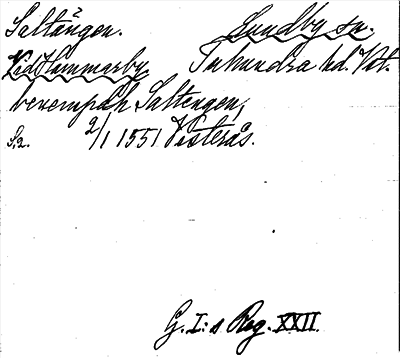 Saltängen. Lundby sn.
Vid Hammarby, Tuhundra hd. Vst.
benempdh Saltengen,
S. 2. 2/1 1551 Västerås.
G. I:s Reg. XXII.